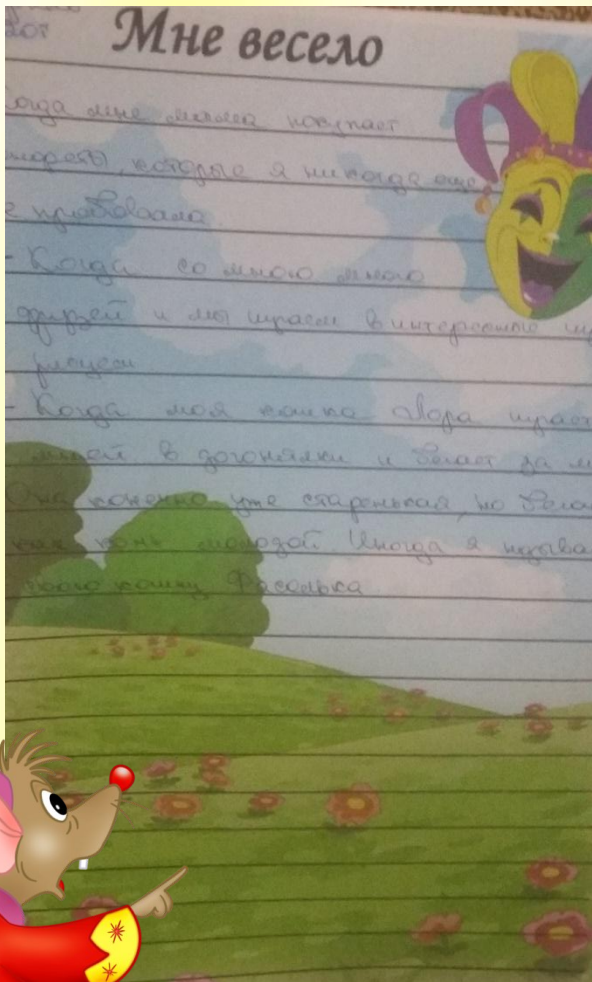 Мне весело
Когда мне мама покупает
конфеты, которые я никогда еще
не пробовала.
- Когда со мною много
друзей и мы играем в интересные
- Когда моя кошка играет
в догонялки и бегает за
Она конечно уже старенькая, но
как конь молодой. Иногда я
свою кошку Фасолька